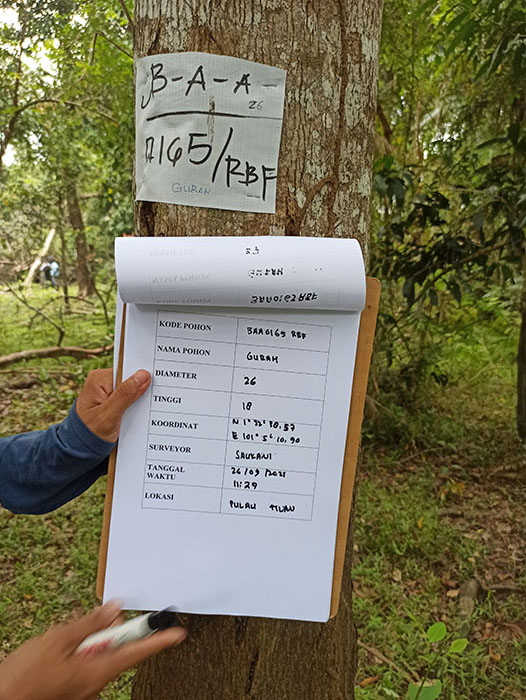 B-A-A-
26
0165/RBF
GURAH
KODE POHON BAA0165 RBF
NAMA POHON GURAH
DIAMETER 26
TINGGI 18
KOORDINAT N 1° 32' 58,57
E 101° 5' 10,90
SURVEYOR SAUKANI
TANGGAL 26/09/2021
WAKTU 11:29
LOKASI PULAU TILAN